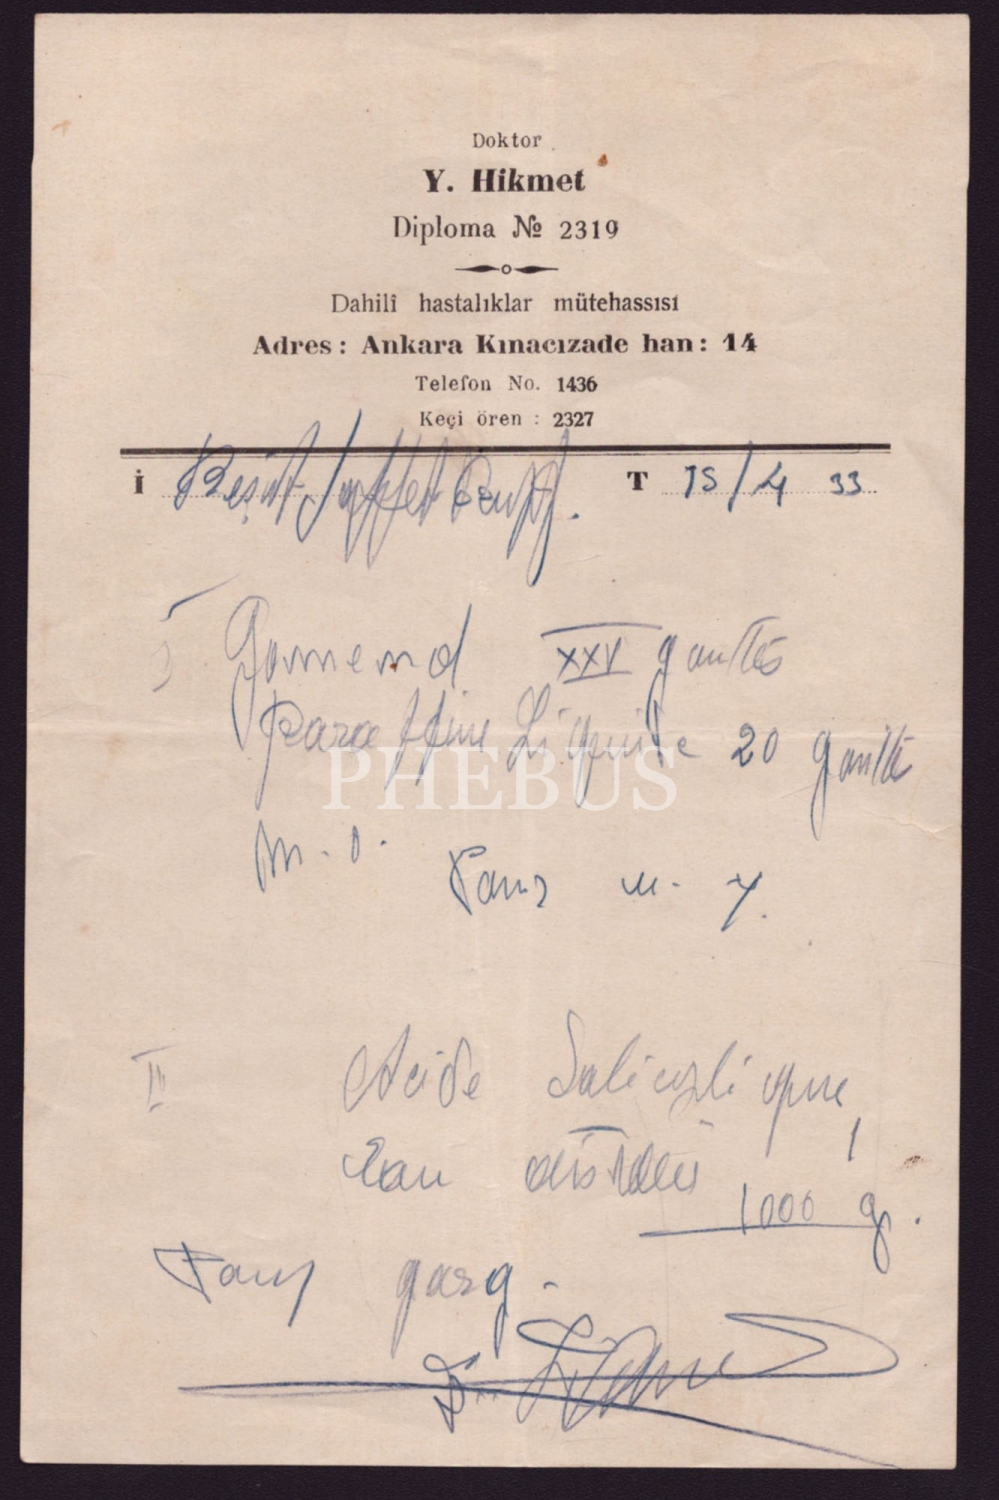 Doktor
Y. Hikmet
Diploma № 2319
Dahilî hastalıklar mütehassısı
Adres : Ankara Kınacızade han : 14
Telefon No. 1436
Keçi ören : 2327
İ Reşit Saffet T 15/4 33
Gomenol XXV gouttes
Paraffine Liquide 20 goutte
PHEBUS
M. D.
Pour
II Acide Salicylique 1
Eau distillée 1000 gr.
Pour garg.
Dr. Hikmet